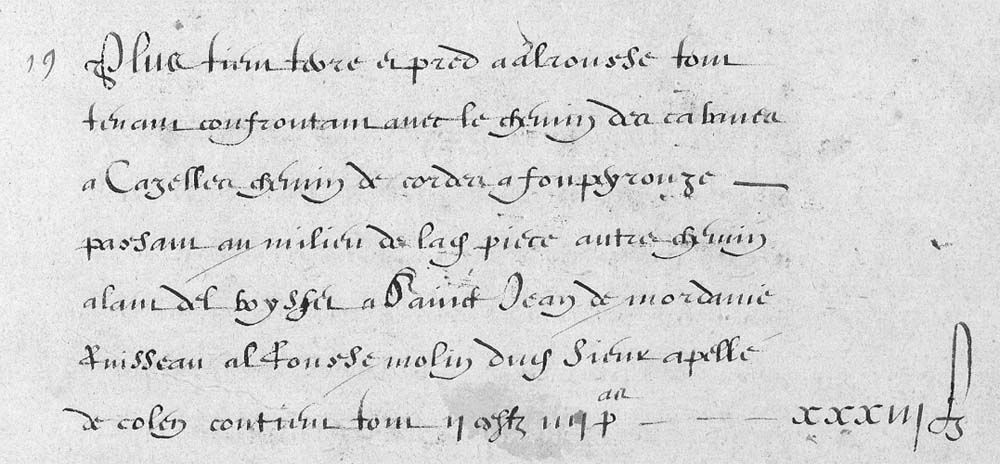 19 Plus tient terre et pred a alrousse tout
tenant confrontant avec le chemin des cabanes
a Cazelles chemin de cordes a fonpeyrouze
passant au milieu de lad piece autre chemin
alant del boysset a Sainct Jean de mordanie
Ruisseau al Rousse molin dud Sieur apelle
de colen contient tout ii iiii p xxxiii